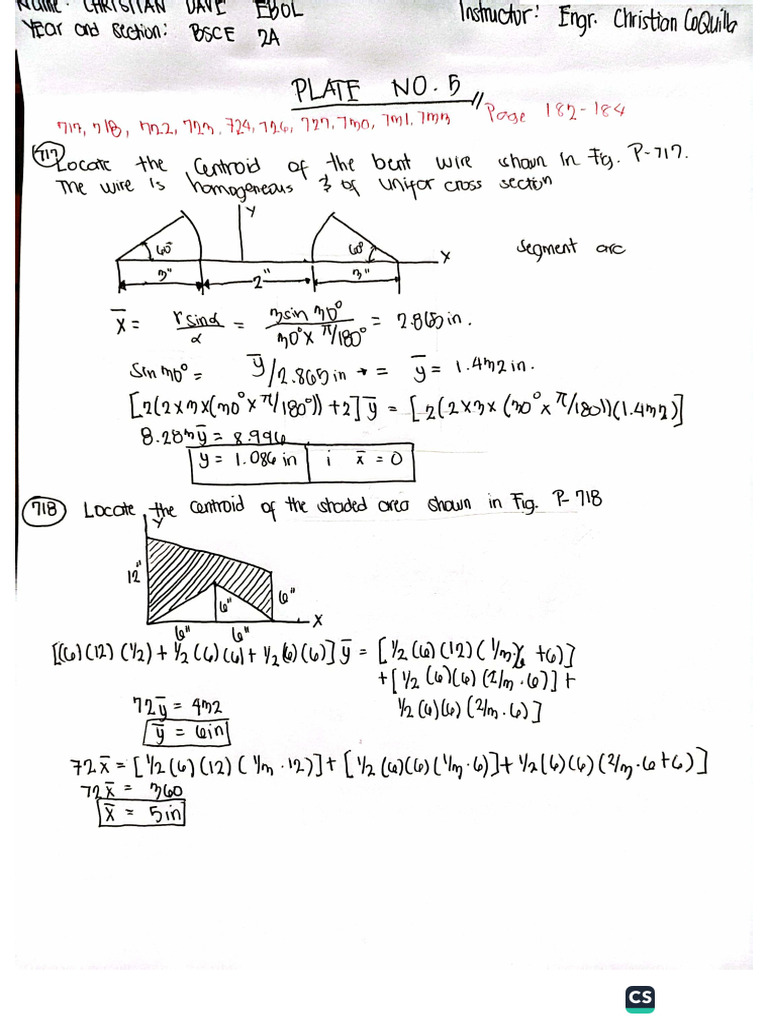 Name: CHRISTIAN DAVE EBOL Instructor: Engr. Christian CoQuilla
Year and Section: BSCE 2A
PLATE NO. 5
717, 718, 722, 723, 724, 726, 727, 730, 731, 733 Page 182-184
717 Locate the Centroid of the bent wire shown in Fig. P-717.
The wire is homogeneous & of unifor cross section
Y
60° 60° X segment arc
3" 2" 3"
x̄ = r sinα / α = 3 sin 30° / 30° x π/180° = 2.865 in.
Sin 30° = ȳ/2.865 in → = ȳ = 1.432 in.
[2(2x3x(30° x π/180°)) + 2] ȳ = [2(2x3x(30° x π/180))(1.432)]
8.283 ȳ = 8.996
y = 1.086 in i x̄ = 0
718 Locate the centroid of the shaded area shown in Fig. P-718
Y
12" 6" 6" X
6" 6"
[(6)(12)(1/2) + 1/2(6)(6) + 1/2(6)(6)] ȳ = [1/2(6)(12)(1/3·6 + 6)]
+ [1/2(6)(6)(2/3·6)] +
1/2(6)(6)(2/3·6)]
72ȳ = 432
ȳ = 6in
72x̄ = [1/2(6)(12)(1/3·12)] + [1/2(6)(6)(1/3·6)] + 1/2(6)(6)(2/3·6+6)]
72x̄ = 360
x̄ = 5in
CS